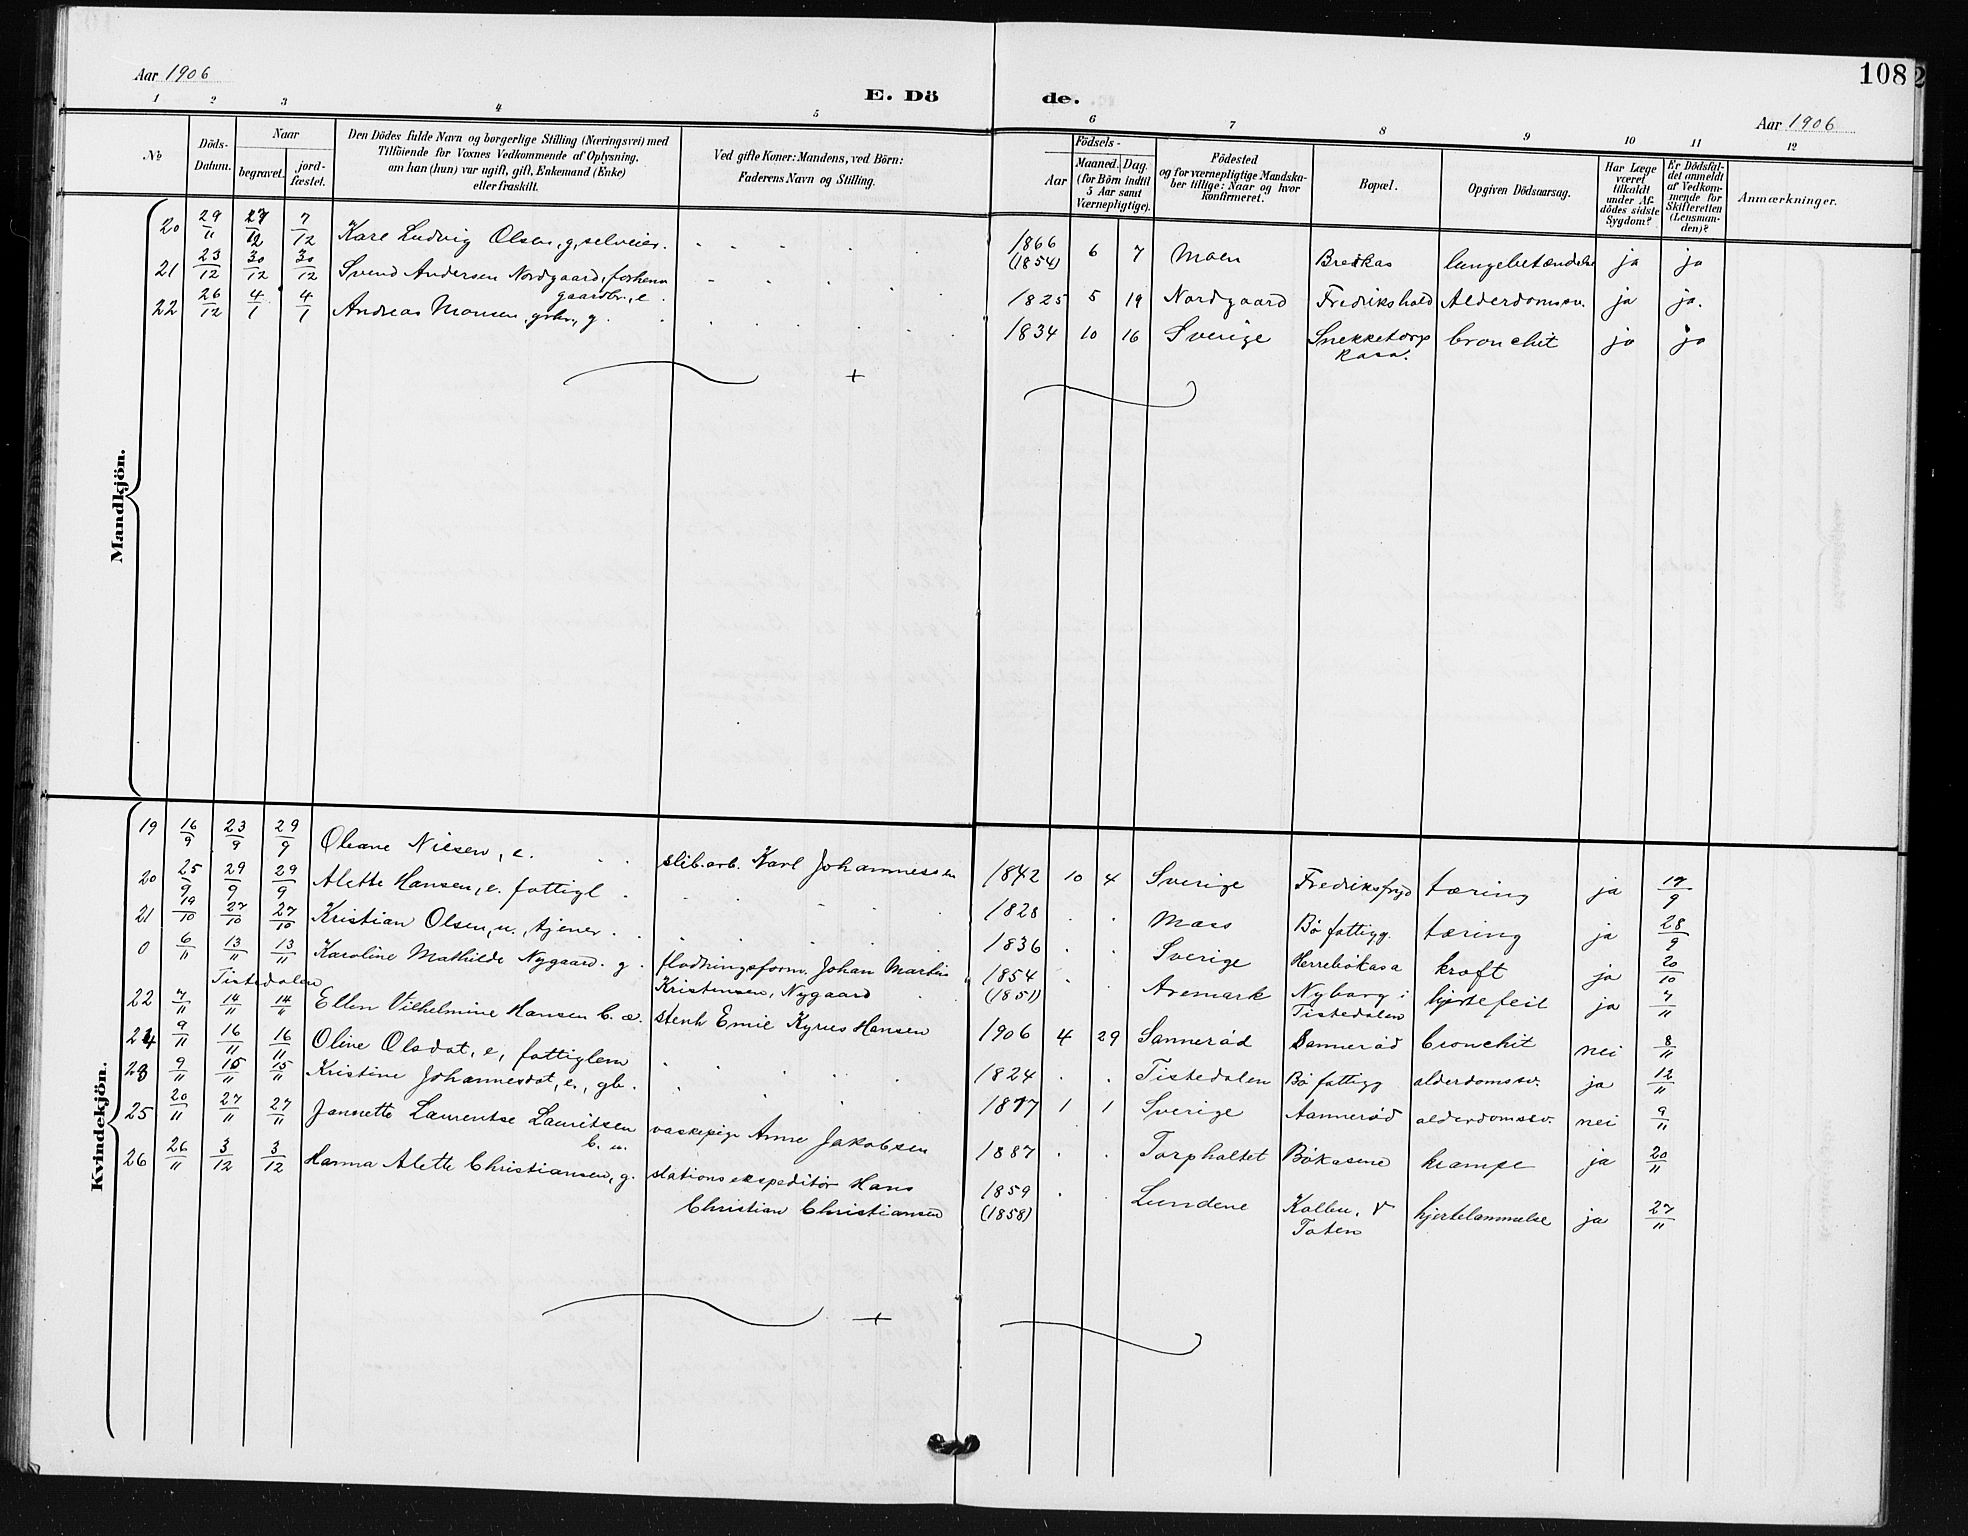 Aar 1906
E. Döde.
108
Aar 1906
1 2 3 4 5 6 7 8 9 10 11 12
No
Döds-Datum.
Naar
begravet.
jordfæstet.
Den Dödes fulde Navn og borgerlige Stilling (Næringsvei) med
Tilföiende for Voxnes Vedkommende af Oplysning,
om han (hun) var ugift, gift, Enkemand (Enke)
eller fraskilt.
Ved gifte Koner: Mandens, ved Börn:
Faderens Navn og Stilling.
Födsels-
Aar
Maaned. Dag.
(for Börn indtil
5 Aar samt
Værnepligtige).
Födested
og for værnepligtige Mandska-
ber tillige: Naar og hvor
konfirmeret.
Bopæl.
Opgiven Dödsaarsag.
Har Læge
været
tilkaldt
under Af-
dödes sidste
Sygdom?
Er Dödsfal-
det anmeldt
af Vedkom-
mende for
Skifteretten
(Lensman-
den)?
Anmærkninger.
Mandkjön.
20 29/11 7/12 Karl Ludvig Olsen, g, selveier. 1866 (1854) 6 7 Moen Bredkas lungebetændelse ja ja
21 23/12 30/12 30/12 Svend Andersen Nordgaard, forhenv gaardbr., e. 1825 5 19 Nordgaard Fredrikshald Alderdomssv. ja ja.
22 26/12 4/1 4/1 Andreas Monsen, grbr., g. 1834 10 16 Sverige Snekketorp kasa. bronchit ja ja
Kvindekjön.
19 16/9 23/9 29/9 Oleane Nilsen, e. slib.arb. Karl Johannessen 1842 10 4 Sverige Fredriksfryd tæring ja 17/9
20 25/9 29/9 29/9 Alette Hansen, e. fattigl. 1828 Moss Bø fattigg. tæring ja 28/9
21 19/10 27/10 27/10 Kristian Olsen, u., tjener. 1836 Sverige Herrebökasa kræft ja 20/10
0 6/11 13/11 13/11 Karoline Mathilde Nygaard. g. flødningsform. Johan Martin
Tistedalen Kristensen, Nygaard 1854 (1851) Aremark Nyborg i Tistedalen hjertefeil ja 7/11
22 7/11 14/11 14/11 Ellen Vilhelmine Hansen b. æ. stenh Emil Hansen 1906 4 29 Sannerød Sannerød bronchit nei 8/11
24 9/11 16/11 16/11 Oline Olsdat, e, fattiglem 1824 Tistedalen Bø fattigg alderdomssv. ja 12/11
23 9/11 15/11 15/11 Kristine Johannesdat, e., gb. 1817 1 1 Sverige Aannerød alderdomssv. nei 9/11
25 20/11 27/11 27/11 Jannette Laurentse Lauritsen b. u. vaskepige Anne Jakobsen 1887 Torpholtet Bökasene krampe ja 20/11
26 26/11 3/12 3/12 Hanna Alette Christiansen, g. stationsekspeditör Hans
Christian Christiansen 1859 (1858) Lundene Kolbu, V Toten hjertelammelse ja 27/11